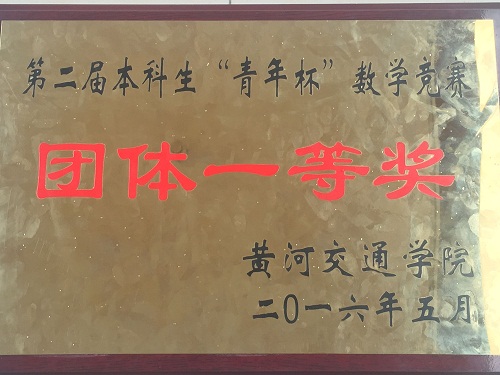 第二届本科生“青年杯”数学竞赛
团体一等奖
黄河交通学院
二〇一六年五月